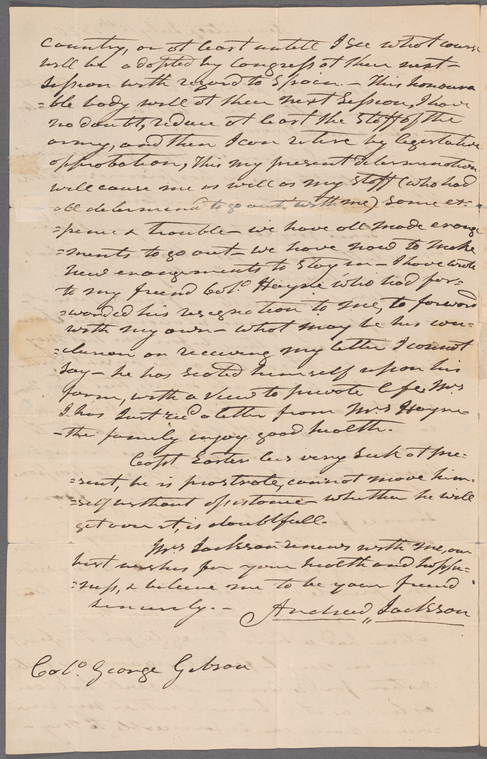 country, or at least untill I see what course
will be adopted by congress at their next
Session with regard to Spain. This honoura
=ble body will at their next Session, I have
no doubt, reduce at least the staff of the
army, and then I can retire by legislative
approbation, This my present determination
will cause me as well as my staff (who had
all determined to go out with me) some ex=
=pence & trouble—we have all made arange
=ments to go out—we have now to make
new arangements to stay in—I have wrote
to my friend Colo. Hayne who had for=
=warded his resignation to me, to forward
with my own—what may be his con=
=clusion on receiving my letter I cannot
say—he has seated himself upon his
farm, with a view to private life, Mrs
J. has Just recd a letter from Mrs Hayne
—the family enjoy good health.
Capt Easter lies very sick at pre=
=sent, he is prostrate, cannot move him=
=self without assistance—whether he will
get over it, is doubtfull.
Mrs Jackson unites with me, our
best wishes for your health and happi=
=ness, & believe me to be your friend
sincerely.— Andrew Jackson
Colo. George Gibson